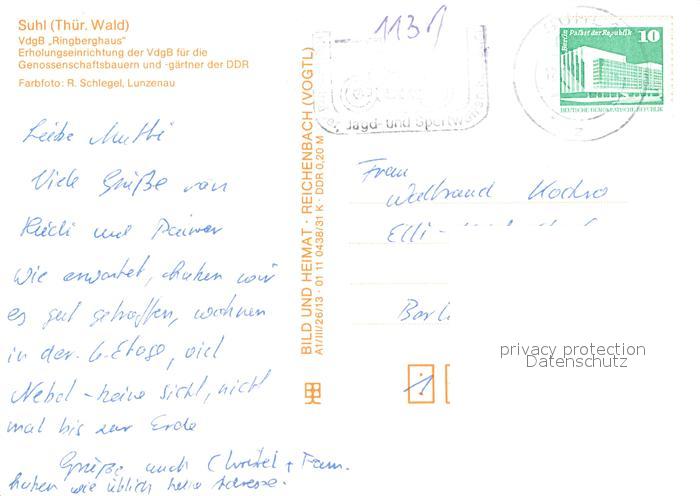 Suhl (Thür. Wald)
VdgB „Ringberghaus"
Erholungseinrichtung der VdgB für die
Genossenschaftsbauern und -gärtner der DDR
Farbfoto: R. Schlegel, Lunzenau
Liebe Mutti
Viele Grüße von
Rudi und
wie erwartet, haben wir
es gut getroffen, wohnen
in der 6. Etage, viel
Nebel - keine Sicht, nicht
mal bis zur Erde
Grüße auch Christel + Fam.
haben wie üblich keine Adresse.
BILD UND HEIMAT · REICHENBACH (VOGTL)
A1/III/26/13 · 01 11 0438/31 K · DDR 0,20 M
113
Jagd- und Sportwaffen
Berlin Palast der Republik
10
DEUTSCHE DEMOKRATISCHE REPUBLIK
Frau
Elli-
Berli
1
privacy protection
Datenschutz